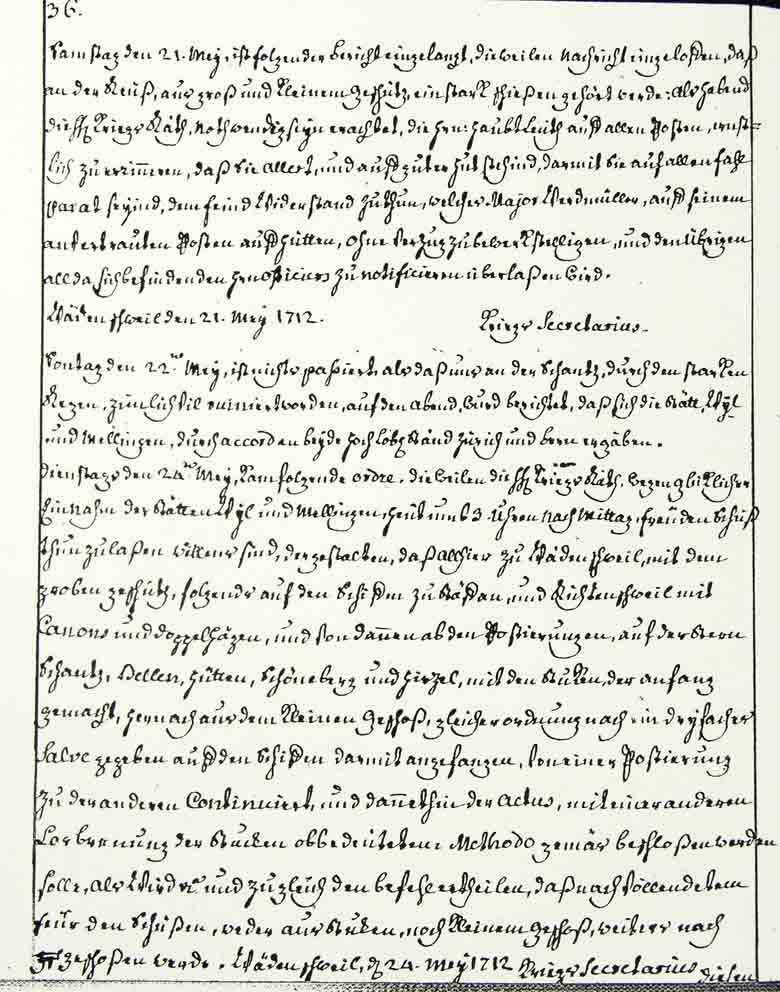 36.
Samstag den 21. Mey, ist folgender bericht eingelangt, dieweilen Nachricht eingeloffen, daß
an der Reüß, aus groß und kleinem geschütz, ein stark schießen gehört werde: als habend
die HH. Kriegs Räth, nothwendig seyn erachtet, die Hrn: Haubtleuth auff allen Posten, ernst-
lich zu erinneren, daß sie allert, und auff guter hut seyind, darmit sie auf allen fahl
parat seyind, dem feind Widerstand zu thun, welches Major Werdmüller, auff seinem
anvertrauten Posten auff Hütten, ohne Verzug zu bewerkstelligen, und den übrigen
allda sich befindenden Hrn Officiers zu notificieren überlaßen wird.
Wädenschweil den 21. Mey 1712.
Kriegs Secretarius.
Sontag den 22. Mey, ist nichts passiert, als daß uns an der Schantz, durch den starken
Regen, zimlich vil ruiniert worden, auf den abend, wurd berichtet, daß sich die Stätt, Wyl
und Mellingen, durch accord an beyde Hochlobl. Ständ Zürich und Bern ergäben.
Dienstags den 24. Mey, kam folgende ordre. dieweilen die HH. Kriegs Räth, wegen glüklicher
Einnahm der Stätten Wyl und Mellingen, heüt umb 3. Uhren Nach Mittag, freüden Schüß
thun zulaßen willens sind, dergestalten, daß allhier zu Wädenschweil, mit dem
groben geschütz, folgends auf den Schiffen zu Stäffan, und Richtenschweil mit
Canons und doppelhäggen, und von dannen ab den Postierungen, auf der Stern
Schantz, Bellen, Hütten, Schöneberg und Hirzel, mit den Stuken, der anfang
gemacht, hernach aus dem kleinen geschoß, gleicher ordnung nach ein dryfacher
Salve gegeben auff den Schiffen darmit angefangen, von einer Postierung
zu der anderen Continuiert, und dannethin der Actus, mit einer anderen
Losbrenung der Stucken obbedeütetem Methodo gemäs beschloßen werden
solle, als wird und zugleich den befehl ertheilen, daß nach vollendetem
feür den Schüßen, weder aus Stuken, noch kleinem geschoß, weiters nach
geschoßen werde. Wädenschweil, d. 24. Mey 1712 Kriegs Secretarius
diesen